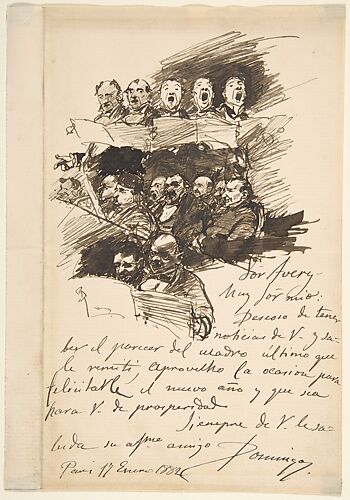 Sor Avery.
Muy Sor mio:
Deseoso de tener
noticias de V. y sa-
ber el parecer del cuadro ultimo que
le remiti, aprovecho la ocasion para
felicitarle el nuevo año y que sea
para V. de prosperidad
Siempre de V. le sa-
luda su afmo. amigo
Domingo.
Paris 17 Enero 1882